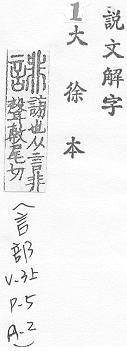 説文解字
1 大徐本
誹
謗也从言非
聲敷尾切
(言部
V-3上
P-5
A-2)